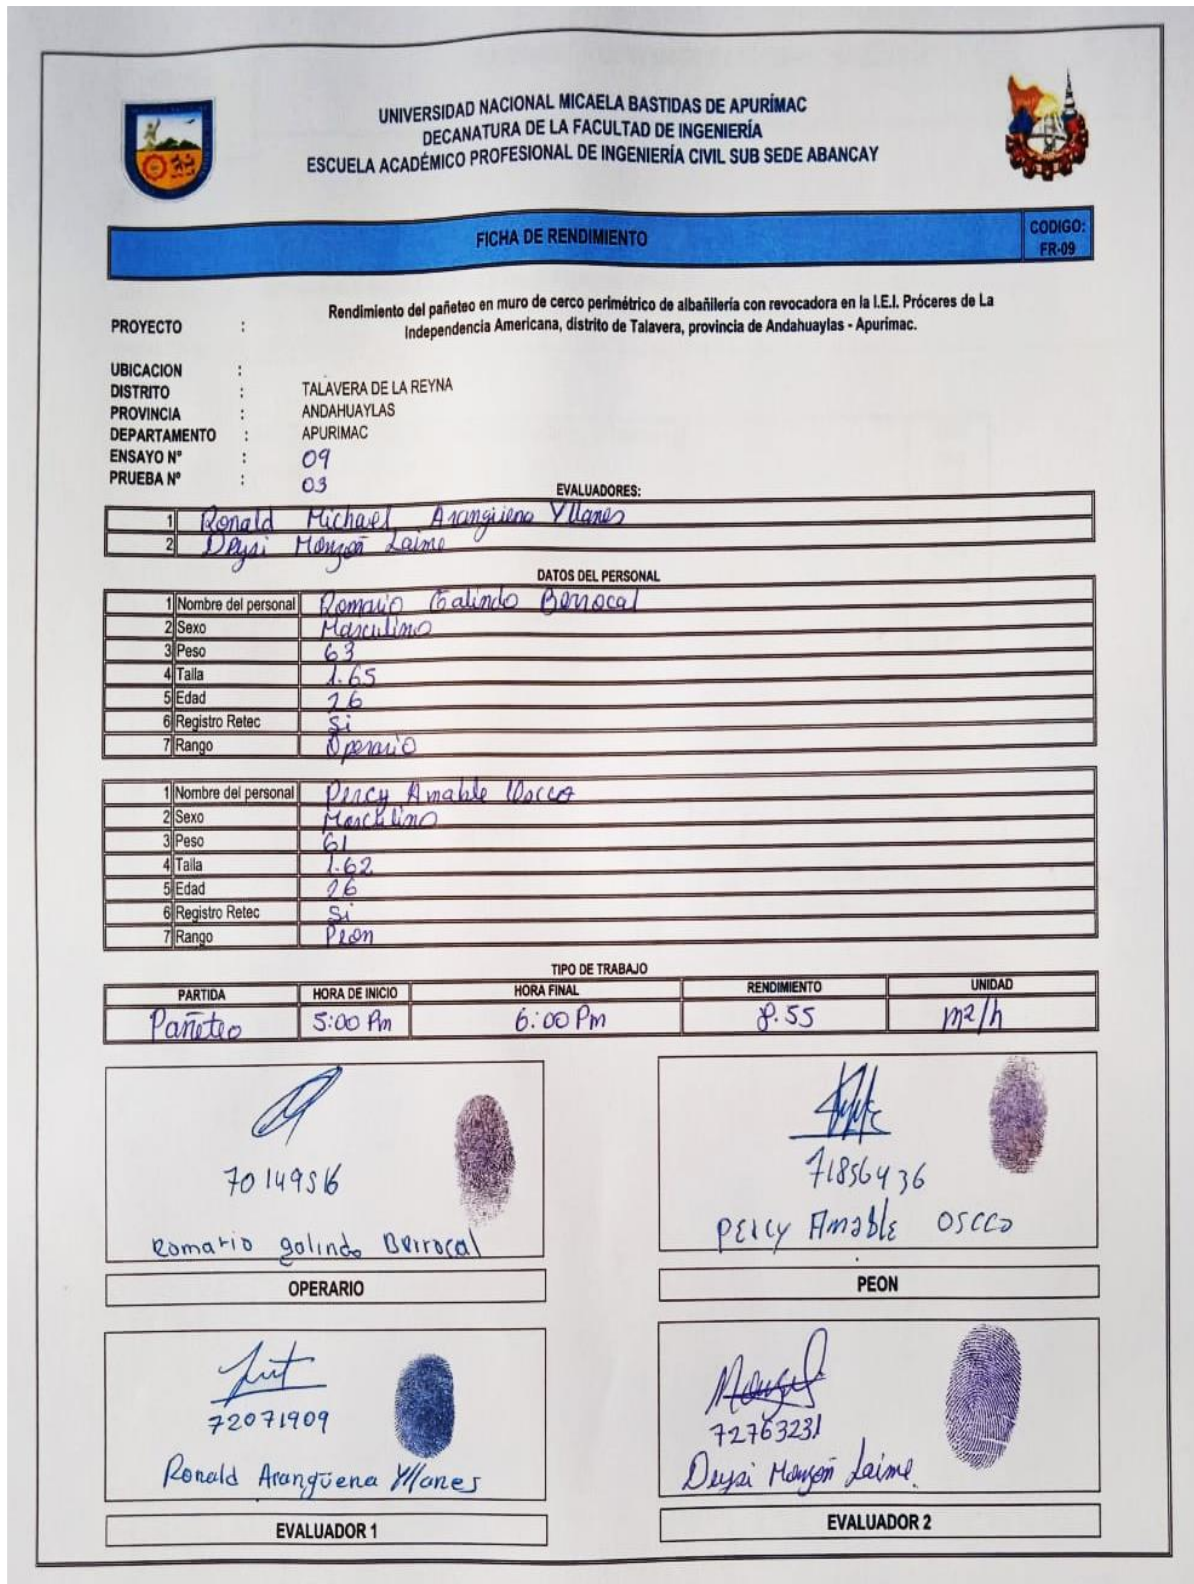 UNIVERSIDAD NACIONAL MICAELA BASTIDAS DE APURÍMAC
DECANATURA DE LA FACULTAD DE INGENIERÍA
ESCUELA ACADÉMICO PROFESIONAL DE INGENIERÍA CIVIL SUB SEDE ABANCAY
FICHA DE RENDIMIENTO
CODIGO:
FR-09
PROYECTO : Rendimiento del pañeteo en muro de cerco perimétrico de albañilería con revocadora en la I.E.I. Próceres de La
Independencia Americana, distrito de Talavera, provincia de Andahuaylas - Apurimac.
UBICACION :
DISTRITO : TALAVERA DE LA REYNA
PROVINCIA : ANDAHUAYLAS
DEPARTAMENTO : APURIMAC
ENSAYO Nº : 09
PRUEBA Nº : 03
EVALUADORES:
1 Ronald Michael Arangüena Yllanes
2 Deysi Monzón Laime
DATOS DEL PERSONAL
1 Nombre del personal Romario Galindo Berrocal
2 Sexo Masculino
3 Peso 63
4 Talla 1.65
5 Edad 26
6 Registro Retec Si
7 Rango Operario
1 Nombre del personal Percy Amable Oscco
2 Sexo Masculino
3 Peso 61
4 Talla 1.62
5 Edad 26
6 Registro Retec Si
7 Rango Peon
TIPO DE TRABAJO
PARTIDA HORA DE INICIO HORA FINAL RENDIMIENTO UNIDAD
Pañeteo 5:00 Pm 6:00 Pm 8.55 m2/h
70149516
Romario galindo Berrocal
OPERARIO
71856436
PERCY Amable OSCCO
PEON
72071909
Ronald Arangüena Yllanes
EVALUADOR 1
72763231
Deysi Monzón Laime.
EVALUADOR 2